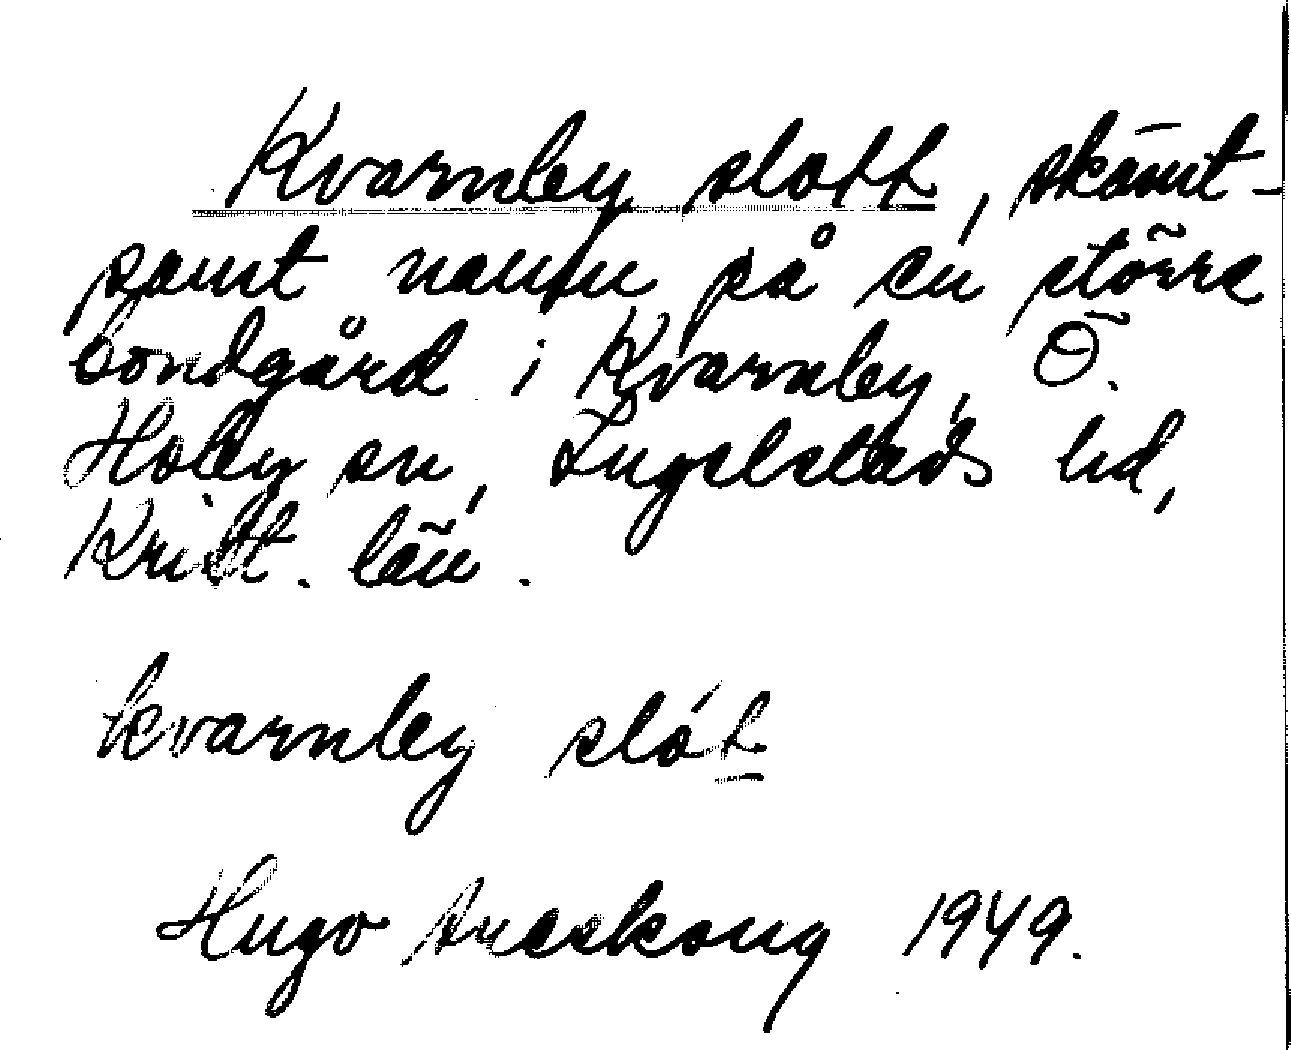 Kvarnby slott, skämt-
samt namn på en större
bondgård i Kvarnby, Ö.
Hoby sn, Ingelstads hd,
Krist. län.
kvarnby slót
Hugo Areskoug 1949.